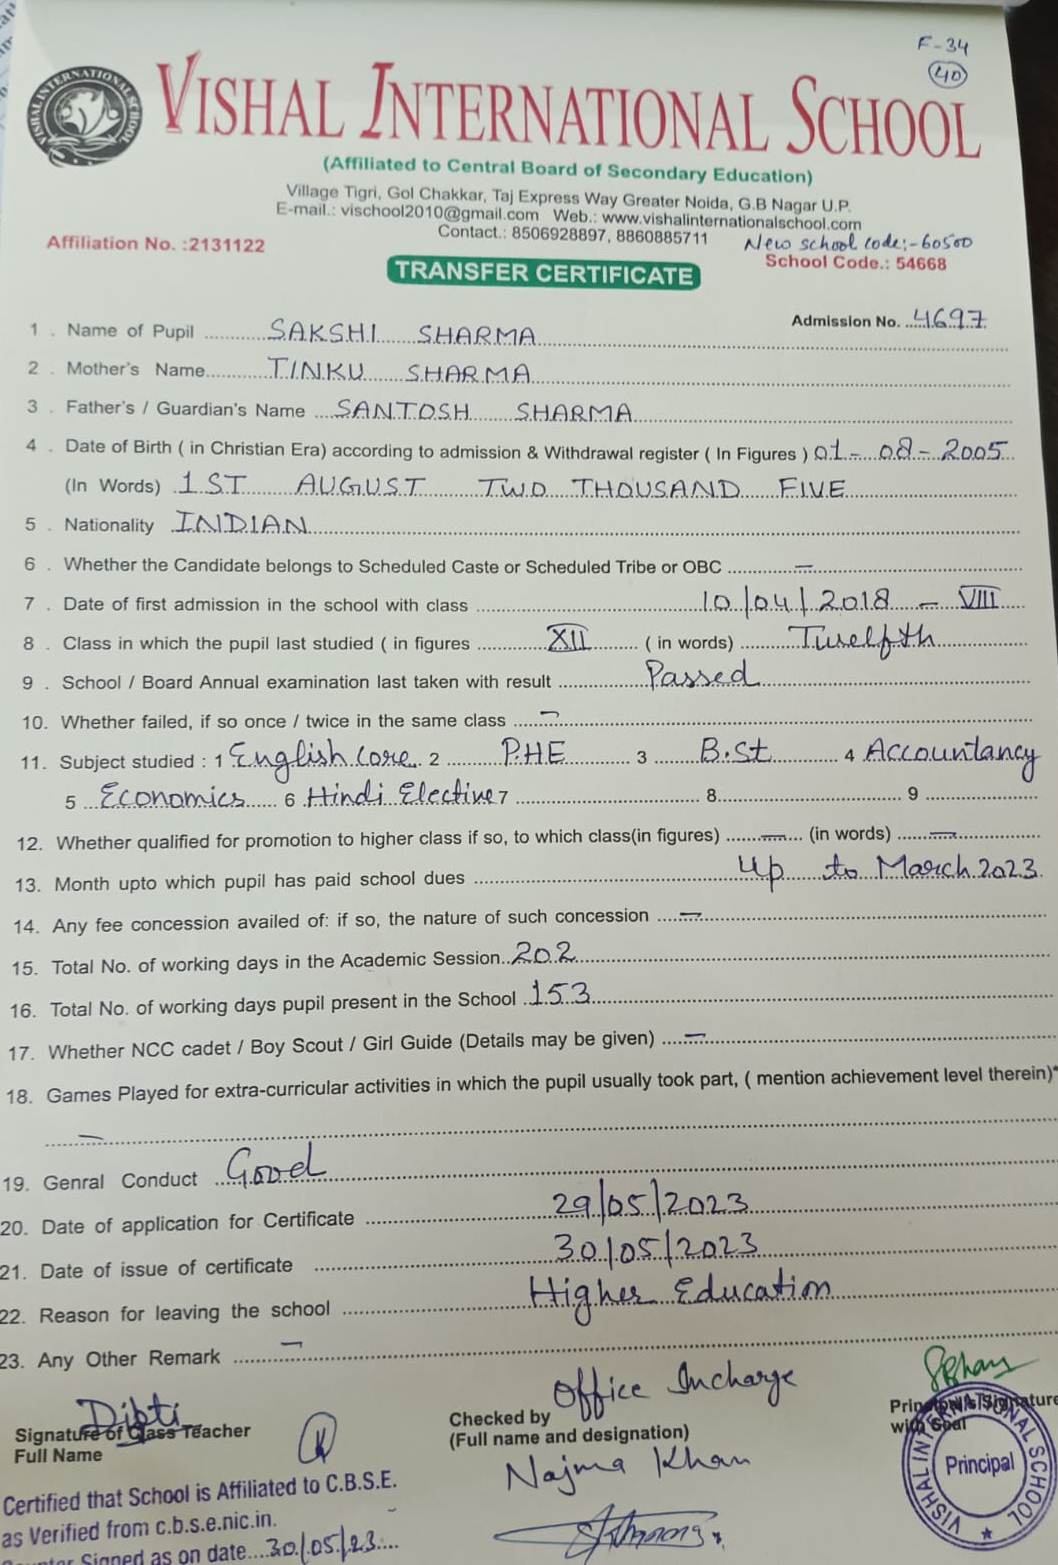 F-34
40
VISHAL INTERNATIONAL SCHOOL
VISHAL INTERNATIONAL SCHOOL
(Affiliated to Central Board of Secondary Education)
Village Tigri, Gol Chakkar, Taj Express Way Greater Noida, G.B Nagar U.P.
E-mail.: vischool2010@gmail.com Web.: www.vishalinternationalschool.com
Contact.: 8506928897, 8860885711
New school code:-60500
Affiliation No. :2131122
School Code.: 54668
TRANSFER CERTIFICATE
Admission No. 4697
1 . Name of Pupil SAKSHI SHARMA
2 . Mother's Name TINKU SHARMA
3 . Father's / Guardian's Name SANTOSH SHARMA
4 . Date of Birth ( in Christian Era) according to admission & Withdrawal register ( In Figures ) 01-08-2005
(In Words) 1ST AUGUST TWO THOUSAND FIVE
5 . Nationality INDIAN
6 . Whether the Candidate belongs to Scheduled Caste or Scheduled Tribe or OBC —
7 . Date of first admission in the school with class 10/04/2018 - VIII
8 . Class in which the pupil last studied ( in figures XII ( in words) Twelfth
9 . School / Board Annual examination last taken with result Passed
10. Whether failed, if so once / twice in the same class —
11. Subject studied : 1 English core 2 P.HE 3 B.St 4 Accountancy
5 Economics 6 Hindi Elective 7 8 9
12. Whether qualified for promotion to higher class if so, to which class(in figures) — (in words) —
13. Month upto which pupil has paid school dues Up to March 2023
14. Any fee concession availed of: if so, the nature of such concession —
15. Total No. of working days in the Academic Session 202
16. Total No. of working days pupil present in the School 153
17. Whether NCC cadet / Boy Scout / Girl Guide (Details may be given) —
18. Games Played for extra-curricular activities in which the pupil usually took part, ( mention achievement level therein)*
—
19. Genral Conduct Good
20. Date of application for Certificate 29/05/2023
21. Date of issue of certificate 30/05/2023
22. Reason for leaving the school Higher Education
23. Any Other Remark —
Dipti
Signature of Class Teacher
Full Name
Office Incharge
Checked by
(Full name and designation)
Najma Khan
Principal's Signature
with Seal
VISHAL INTERNATIONAL SCHOOL
Principal
Certified that School is Affiliated to C.B.S.E.
as Verified from c.b.s.e.nic.in.
Signed as on date 30/05/23